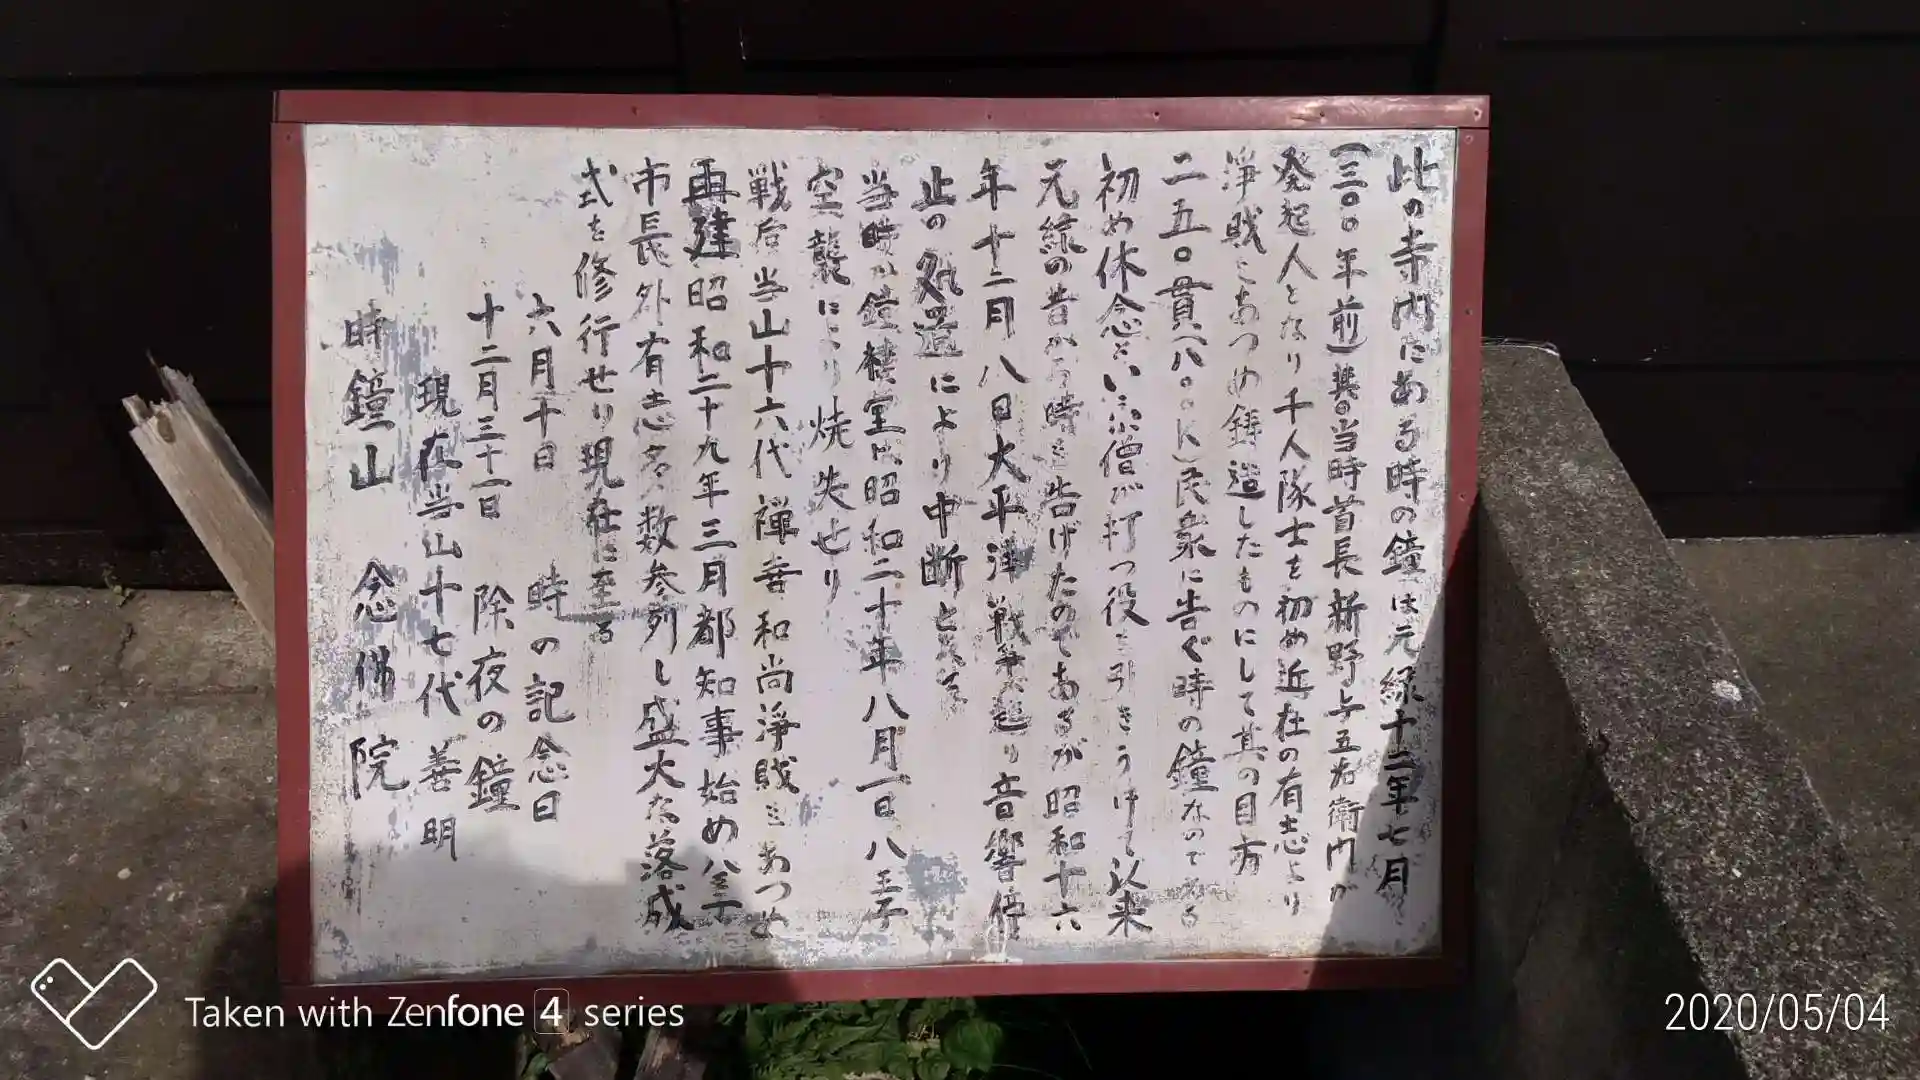 此の寺内にある時の鐘は元禄十二年七月
(三〇〇年前)其の当時首長新野与五右衛門が
発起人となり千人隊士を初め近在の有志より
浄財をあつめ鋳造したものにして其の目方
二五〇貫(八〇〇K)民衆に告ぐ時の鐘なのである
初め休念という僧が打つ役を引きうけて以来
元禄の昔から時を告げたのであるが昭和十六
年十二月八日大平洋戦争起り音響停
止の処置により中断となる
当時の鐘楼堂は昭和二十年八月一日八王子
空襲により焼失せり
戦后当山十六代禅香和尚浄財をあつめ
再建昭和二十九年三月都知事始め八王子
市長外有志多数参列し盛大な落成
式を修行せり現在に至る
六月十日 時の記念日
十二月三十一日 除夜の鐘
現在当山十七代 善明
時鐘山 念佛院
Taken with Zenfone 4 series
2020/05/04